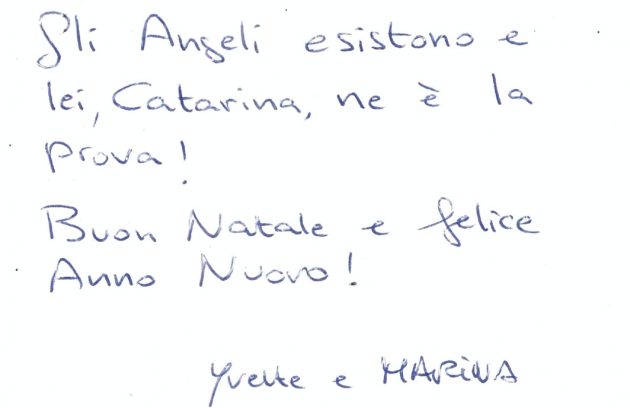 Gli Angeli esistono e
lei, Catarina, ne è la
prova!
Buon Natale e felice
Anno Nuovo!
Yvette e MARiNA